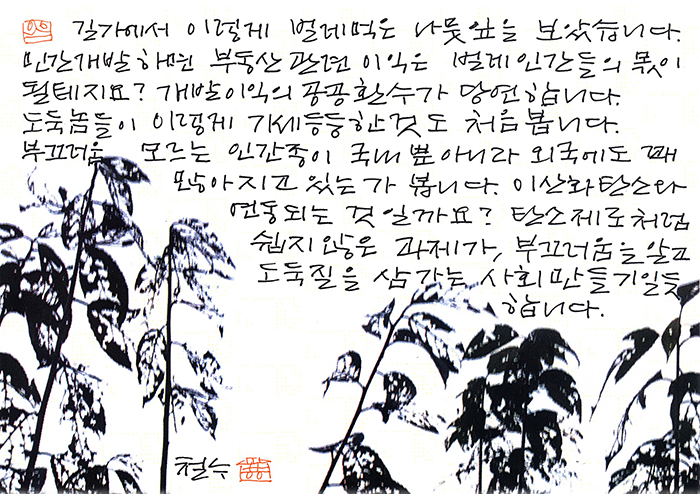 길가에서 이렇게 벌레먹은 나뭇잎을 보았습니다.
민간개발 하면 부동산 관련 이익은 벌레인간들의 몫이
될테지요? 개발이익의 공공환수가 당연합니다.
도둑놈들이 이렇게 기세등등한 것도 처음봅니다.
부끄러움 모르는 인간종이 국내뿐아니라 외국에도 꽤
많아지고 있는가 봅니다. 이산화탄소와
연동되는 것일까요? 탄소제로처럼
쉽지않은 과제가, 부끄러움을 알고
도둑질을 삼가는 사회만들기일듯
합니다.
철수